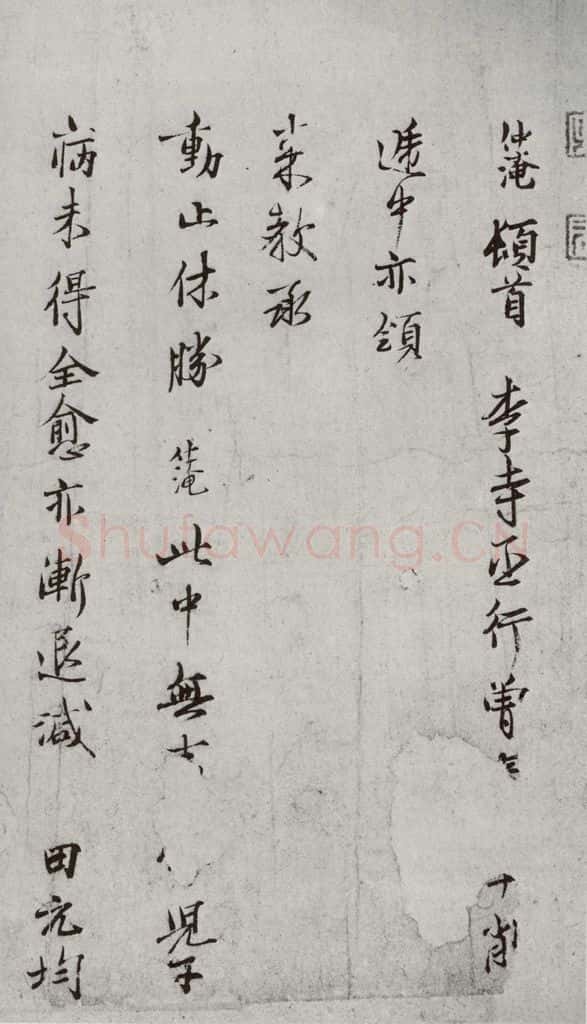 仲淹頓首 李寺丞行曾 削
遞中亦領
來教承
動止休勝 仲淹此中無 兒子
病未得全愈亦漸退減 田元均
Shufawang.CN